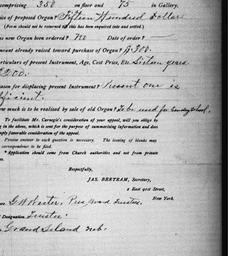 comprising 350 on floor and 75 in Gallery.
of proposed Organ? Fifteen Hundred Dollars
(Form should not be returned till this has been inquired into and settled.)
new Organ been ordered? No Date of order?
amount already raised toward purchase of Organ? $300.
Particulars of present Instrument, Age, Cost Price, Etc. Sixteen years
$200.
reason for displacing present Instrument? Present one is
much is to be realized by sale of old Organ? To be used for Sunday School.
To facilitate Mr. Carnegie's consideration of your appeal, will you oblige by
in the above, which is sent for the purpose of summarizing information and does
imply favorable consideration of the appeal.
Precise answer to each question is necessary. The issuing of blanks may
correspondence to be filed.
Application should come from Church authorities and not from private
Respectfully,
JAS. BERTRAM, Secretary,
2 East 91st Street,
New York.
Designation Trustee
Grand Island Neb.